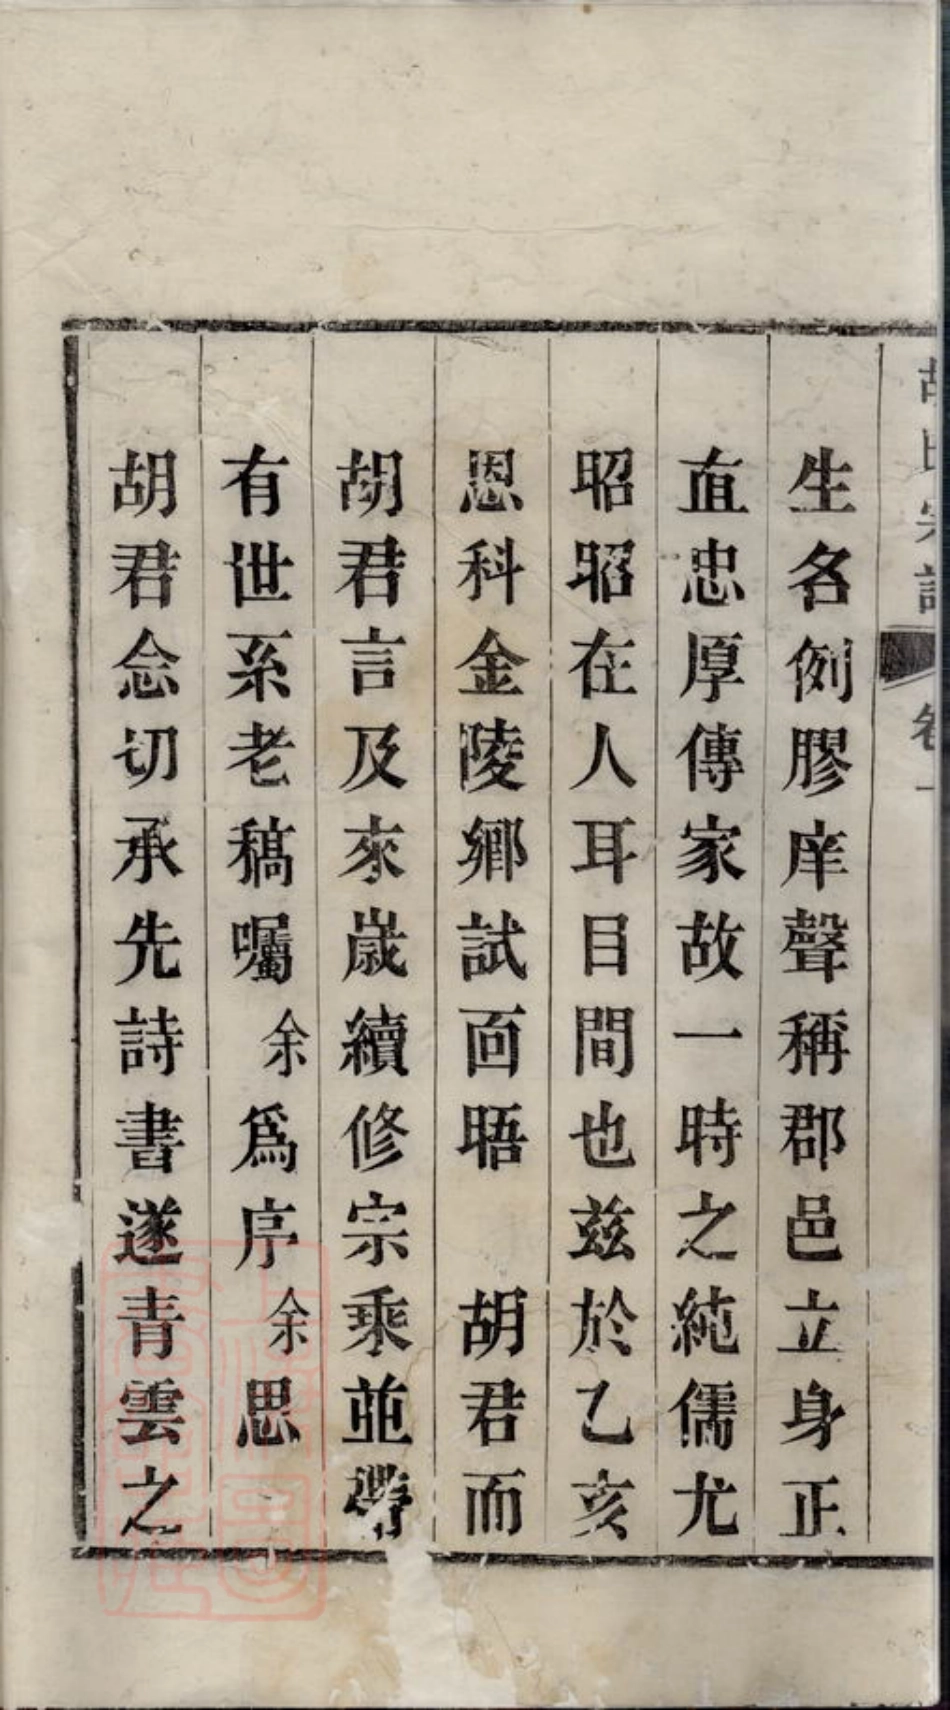 胡氏宗譜 卷一
生名例膠庠聲稱郡邑立身正
直忠厚傳家故一時之純儒尤
昭昭在人耳目間也兹於乙亥
恩科金陵鄉試面晤 胡君而
胡君言及來歲續修宗乘並帶
有世系老稿囑余爲序余思
胡君念切承先詩書遂青雲之